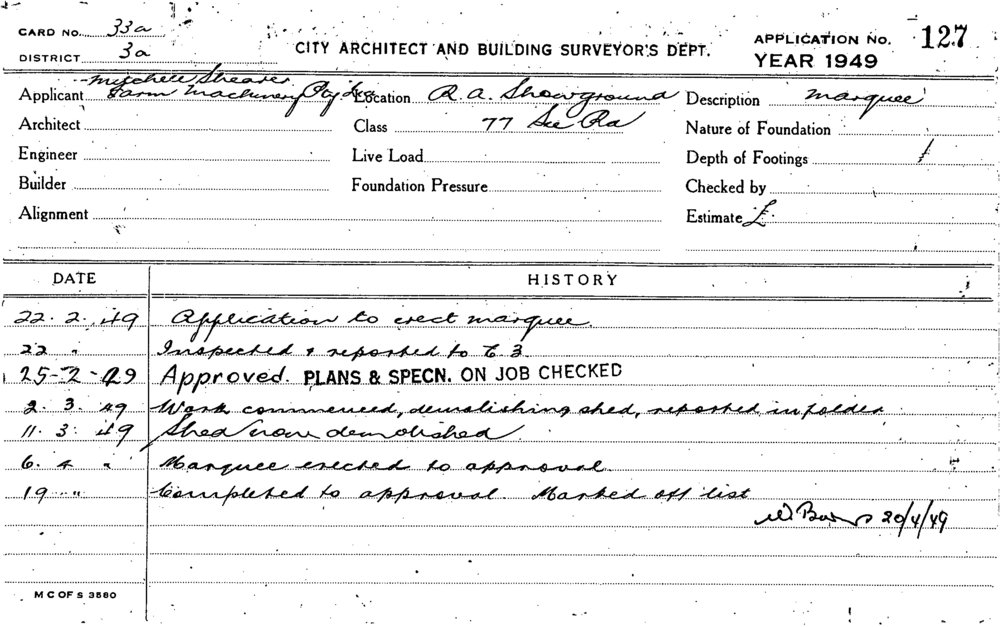 CARD NO. 33a
DISTRICT 3a
CITY ARCHITECT AND BUILDING SURVEYOR'S DEPT.
APPLICATION No. 127
YEAR 1949
Applicant Mitchell Shearer Farm Machinery Pty Ltd
Architect
Engineer
Builder
Alignment
Location R. A. Showground
Class 77 See Ra
Live Load
Foundation Pressure
Description marquee
Nature of Foundation
Depth of Footings
Checked by
Estimate £
DATE HISTORY
22. 2. 49 Application to erect marquee.
22 " Inspected & reported to C. 3.
25-2-49 Approved. PLANS & SPECN. ON JOB CHECKED
2. 3. 49 Work commenced, demolishing shed, reported in folder
11. 3. 49 Shed now demolished.
6. 4 " Marquee erected to approval.
19 " " Completed to approval. Marked off list
20/4/49
M C OF S 3580